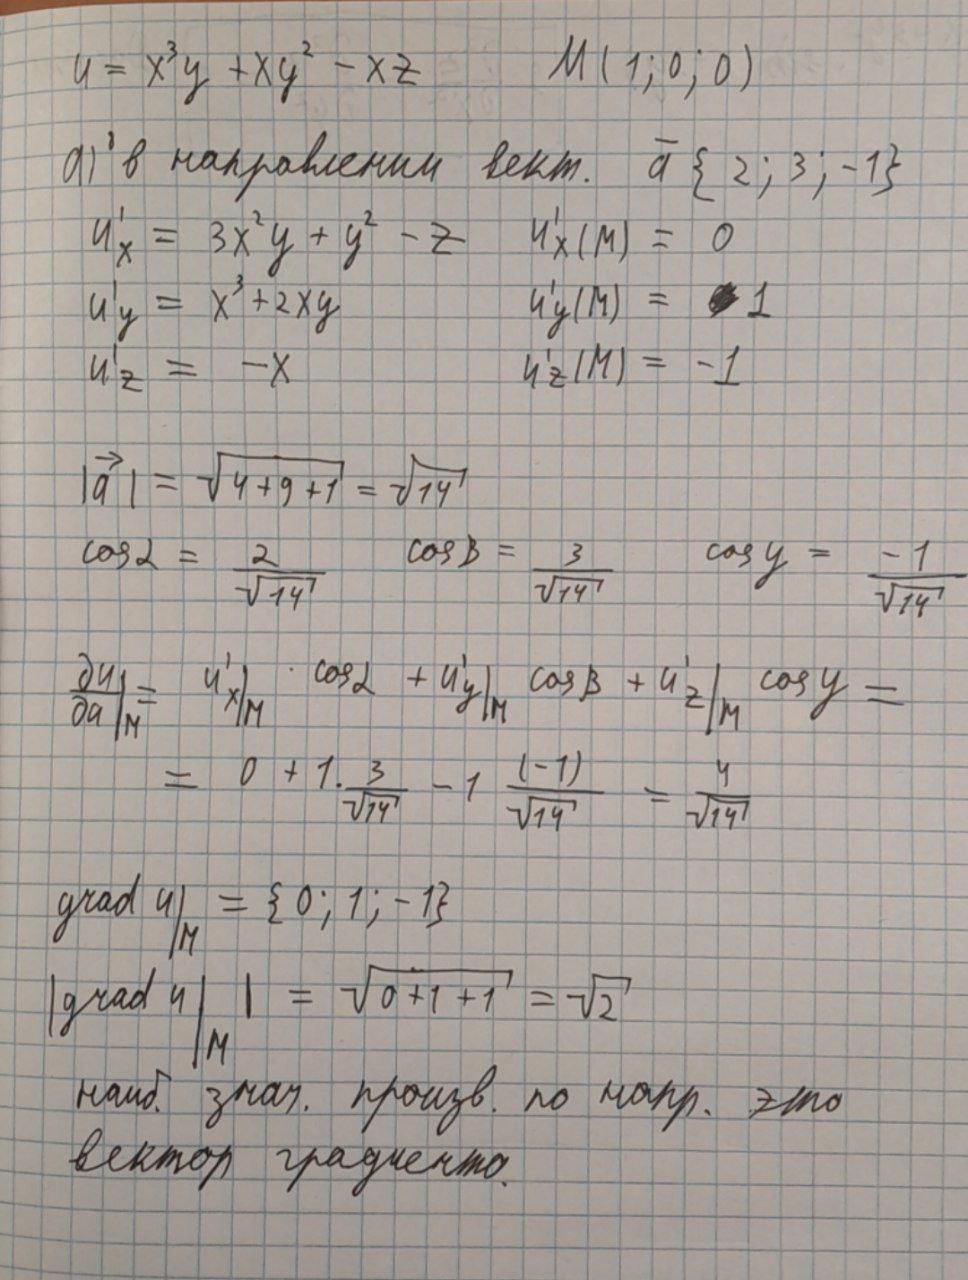 u = x³y + xy² - xz M(1;0;0)
а) в направлении вект. a̅ {2; 3; -1}
u'x = 3x²y + y² - z u'x(M) = 0
u'y = x³ + 2xy u'y(M) = 1
u'z = -x u'z(M) = -1
|a⃗| = √(4+9+1) = √14
cosα = 2/√14 cosβ = 3/√14 cosγ = -1/√14
∂u/∂a|M = u'x|M · cosα + u'y|M cosβ + u'z|M cosγ =
= 0 + 1·3/√14 - 1 (-1)/√14 = 4/√14
grad u|M = {0; 1; -1}
|grad u|M| = √(0+1+1) = √2
наиб. знач. произв. по напр. это
вектор градиента.